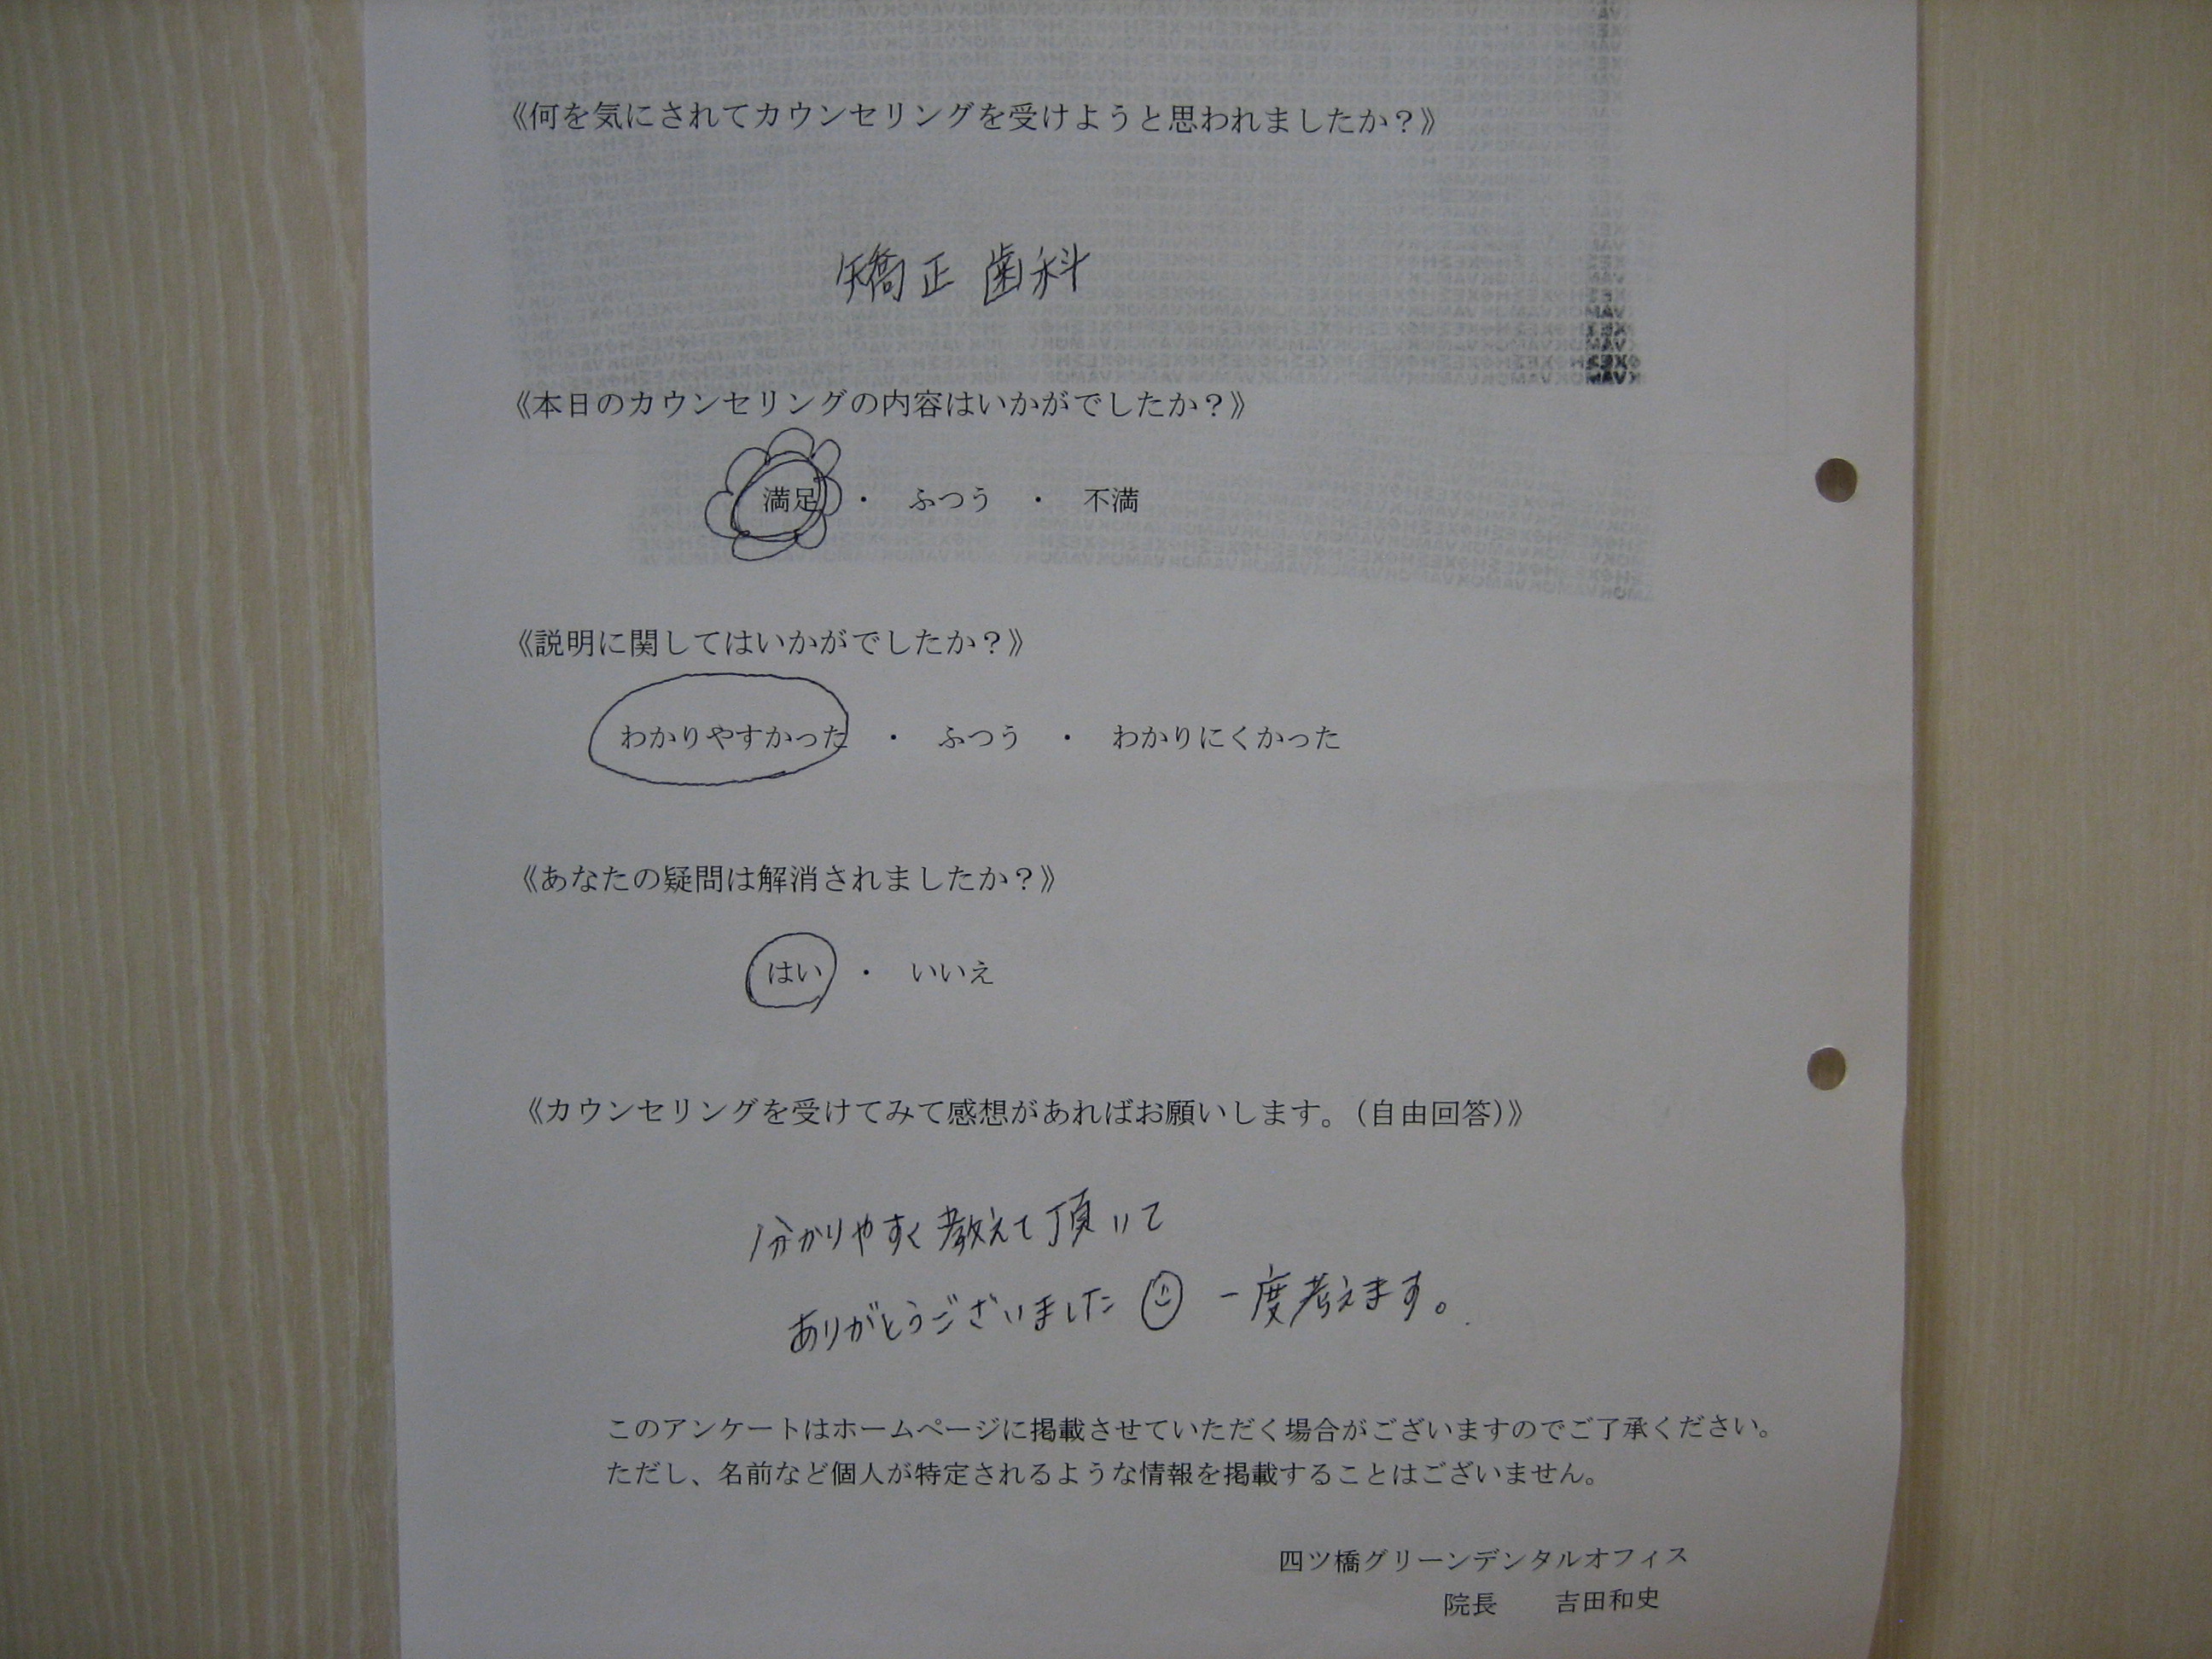 《何を気にされてカウンセリングを受けようと思われましたか？》
矯正歯科
《本日のカウンセリングの内容はいかがでしたか？》
満足 ・ ふつう ・ 不満
《説明に関してはいかがでしたか？》
わかりやすかった ・ ふつう ・ わかりにくかった
《あなたの疑問は解消されましたか？》
はい ・ いいえ
《カウンセリングを受けてみて感想があればお願いします。（自由回答）》
分かりやすく教えて頂いて
ありがとうございました 一度考えます。
このアンケートはホームページに掲載させていただく場合がございますのでご了承ください。
ただし、名前など個人が特定されるような情報を掲載することはございません。
四ツ橋グリーンデンタルオフィス
院長 吉田和史